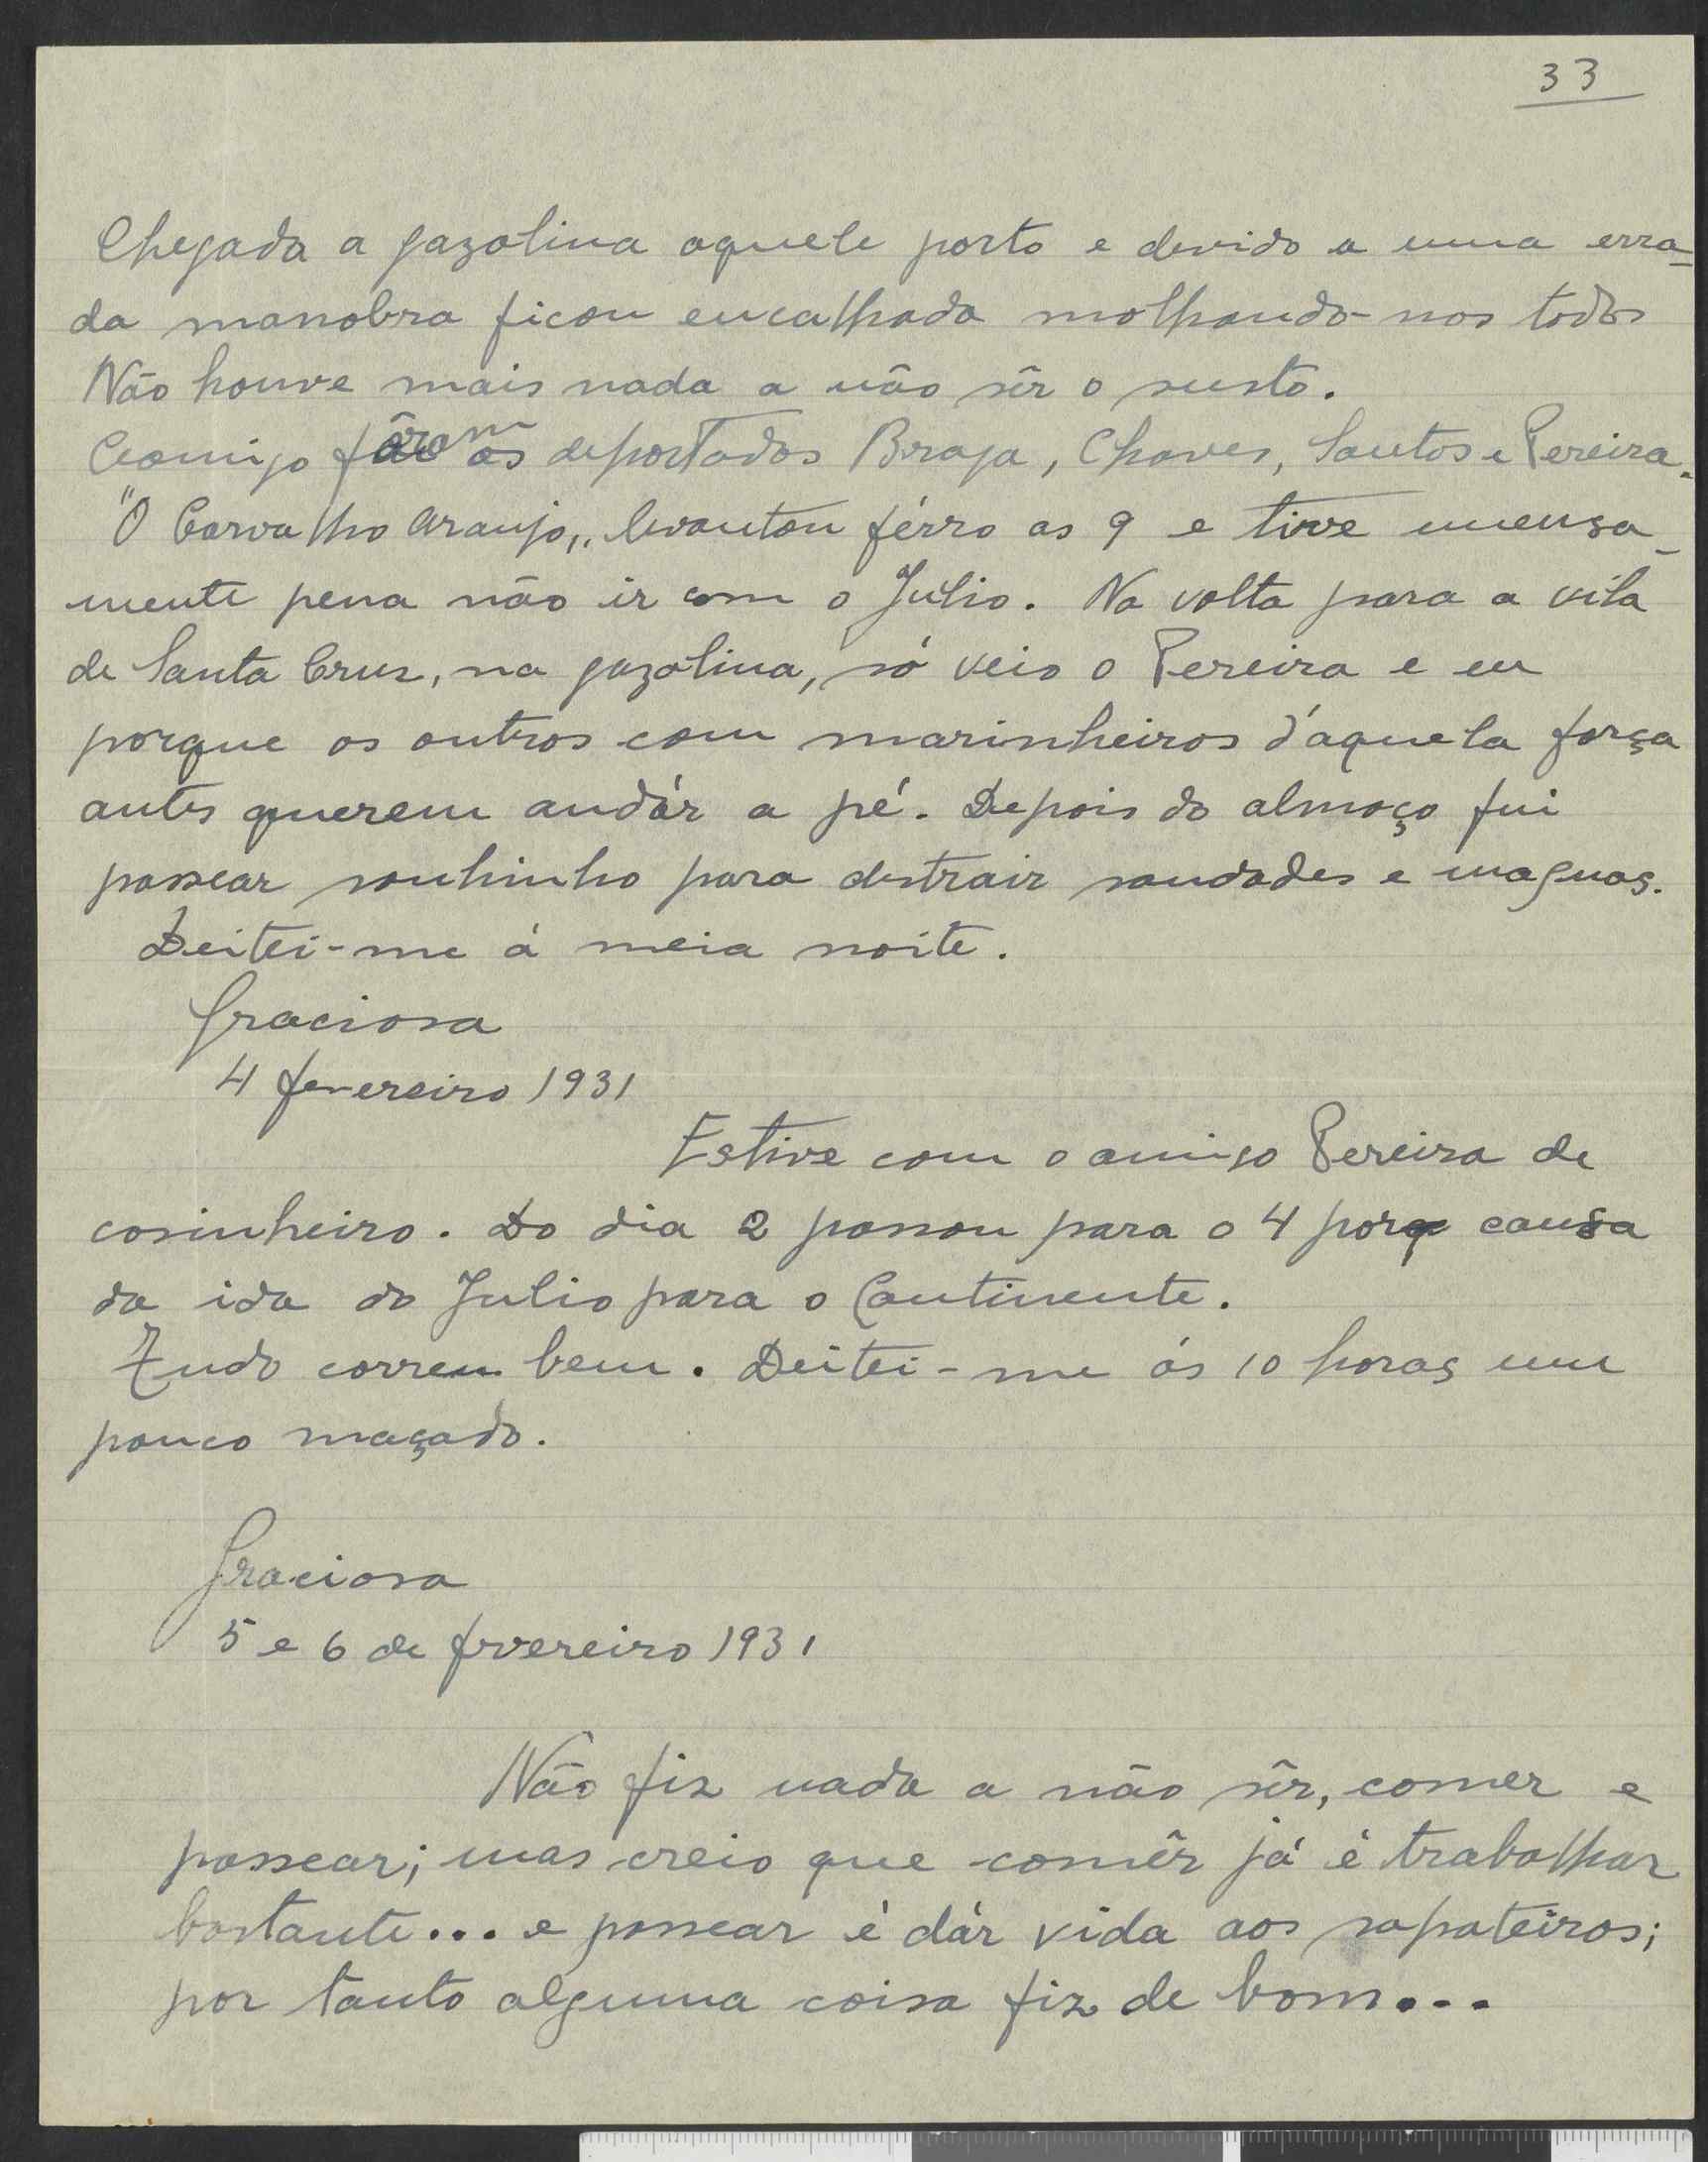 33
Chegada a gazolina aquele porto e devido a uma erra-
da manobra ficou encalhada molhando-nos todos
Não houve mais nada a não sêr o susto.
Comigo fôram os deportados Braga, Chaves, Santos e Pereira.
"O Carvalho Araujo,, levantou férro as 9 e tive imensa-
mente pena não ir com o Julio. Na volta para a vila
de Santa Cruz, na gazolina, só veio o Pereira e eu
porque os outros com marinheiros d'aquela força
antes querem andár a pé. Depois do almoço fui
passear sòuhinho para distrair saudades e maguas.
Deitei-me á meia noite.
Graciosa
4 fevereiro 1931
Estive com o amigo Pereira de
cosinheiro. Do dia 2 passou para o 4 por causa
da ida do Julio para o Continente.
Tudo correu bem. Deitei-me ás 10 horas um
pouco maçado.
Graciosa
5 e 6 de fevereiro 1931
Não fiz nada a não sêr, comer e
passear; mas creio que comêr já é trabalhar
bastante... e passear é dár vida aos sapateiros;
por tanto alguma coisa fiz de bom...